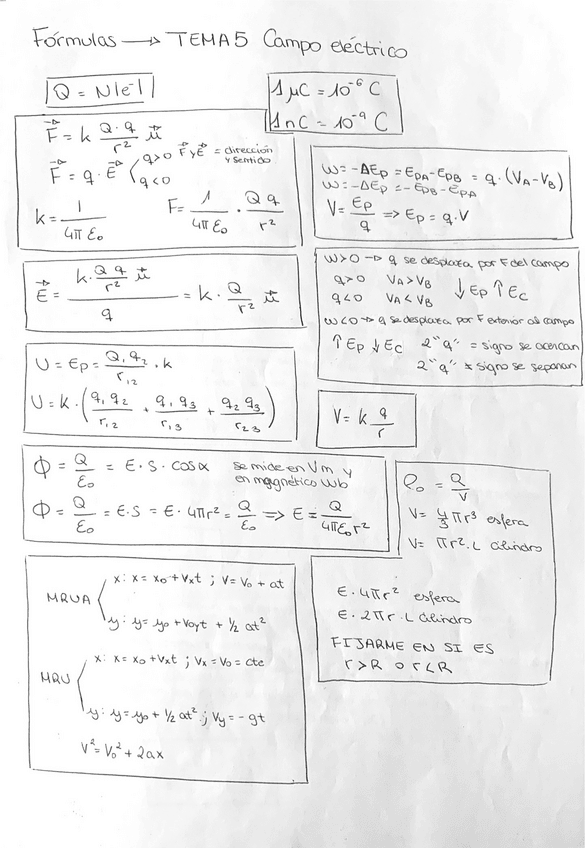 Fórmulas → TEMA 5 Campo eléctrico
Q = N|e-|
1 μC = 10⁻⁶ C
1 nC = 10⁻⁹ C
F = k Q·q/r² u
F = q·E q>0 F y E = dirección y sentido
q<0
k = 1/4πε₀ F = 1/4πε₀ · Qq/r²
W = -ΔEp = EpA - EpB = q·(VA - VB)
W = -ΔEp = -EpB - EpA
V = Ep/q ⇒ Ep = q·V
E = (k·Qq/r² u)/q = k·Q/r² u
W>0 → q se desplaza por F del campo
q>0 VA>VB ↓Ep ↑Ec
q<0 VA<VB
W<0 → q se desplaza por F exterior al campo
↑Ep ↓Ec 2 "q" = signo se acercan
2 "q" ≠ signo se separan
U = Ep = Q₁q₂/r₁₂ · k
U = k·(q₁q₂/r₁₂ + q₁q₃/r₁₃ + q₂q₃/r₂₃)
V = k q/r
Φ = Q/ε₀ = E·S·cosα se mide en Vm y
en magnético Wb
Φ = Q/ε₀ = E·S = E·4πr² = Q/ε₀ ⇒ E = Q/4πε₀r²
ρ₀ = Q/V
V = 4/3 πr³ esfera
V = πr²·L cilindro
E·4πr² esfera
E·2πr·L cilindro
FIJARME EN SI ES
r>R o r<R
MRUA
x: x = x₀ + Vxt ; V = V₀ + at
y: y = y₀ + V₀yt + 1/2 at²
MRU
x: x = x₀ + Vxt ; Vx = V₀ = cte
y: y = y₀ + 1/2 at² ; Vy = -gt
V² = V₀² + 2ax